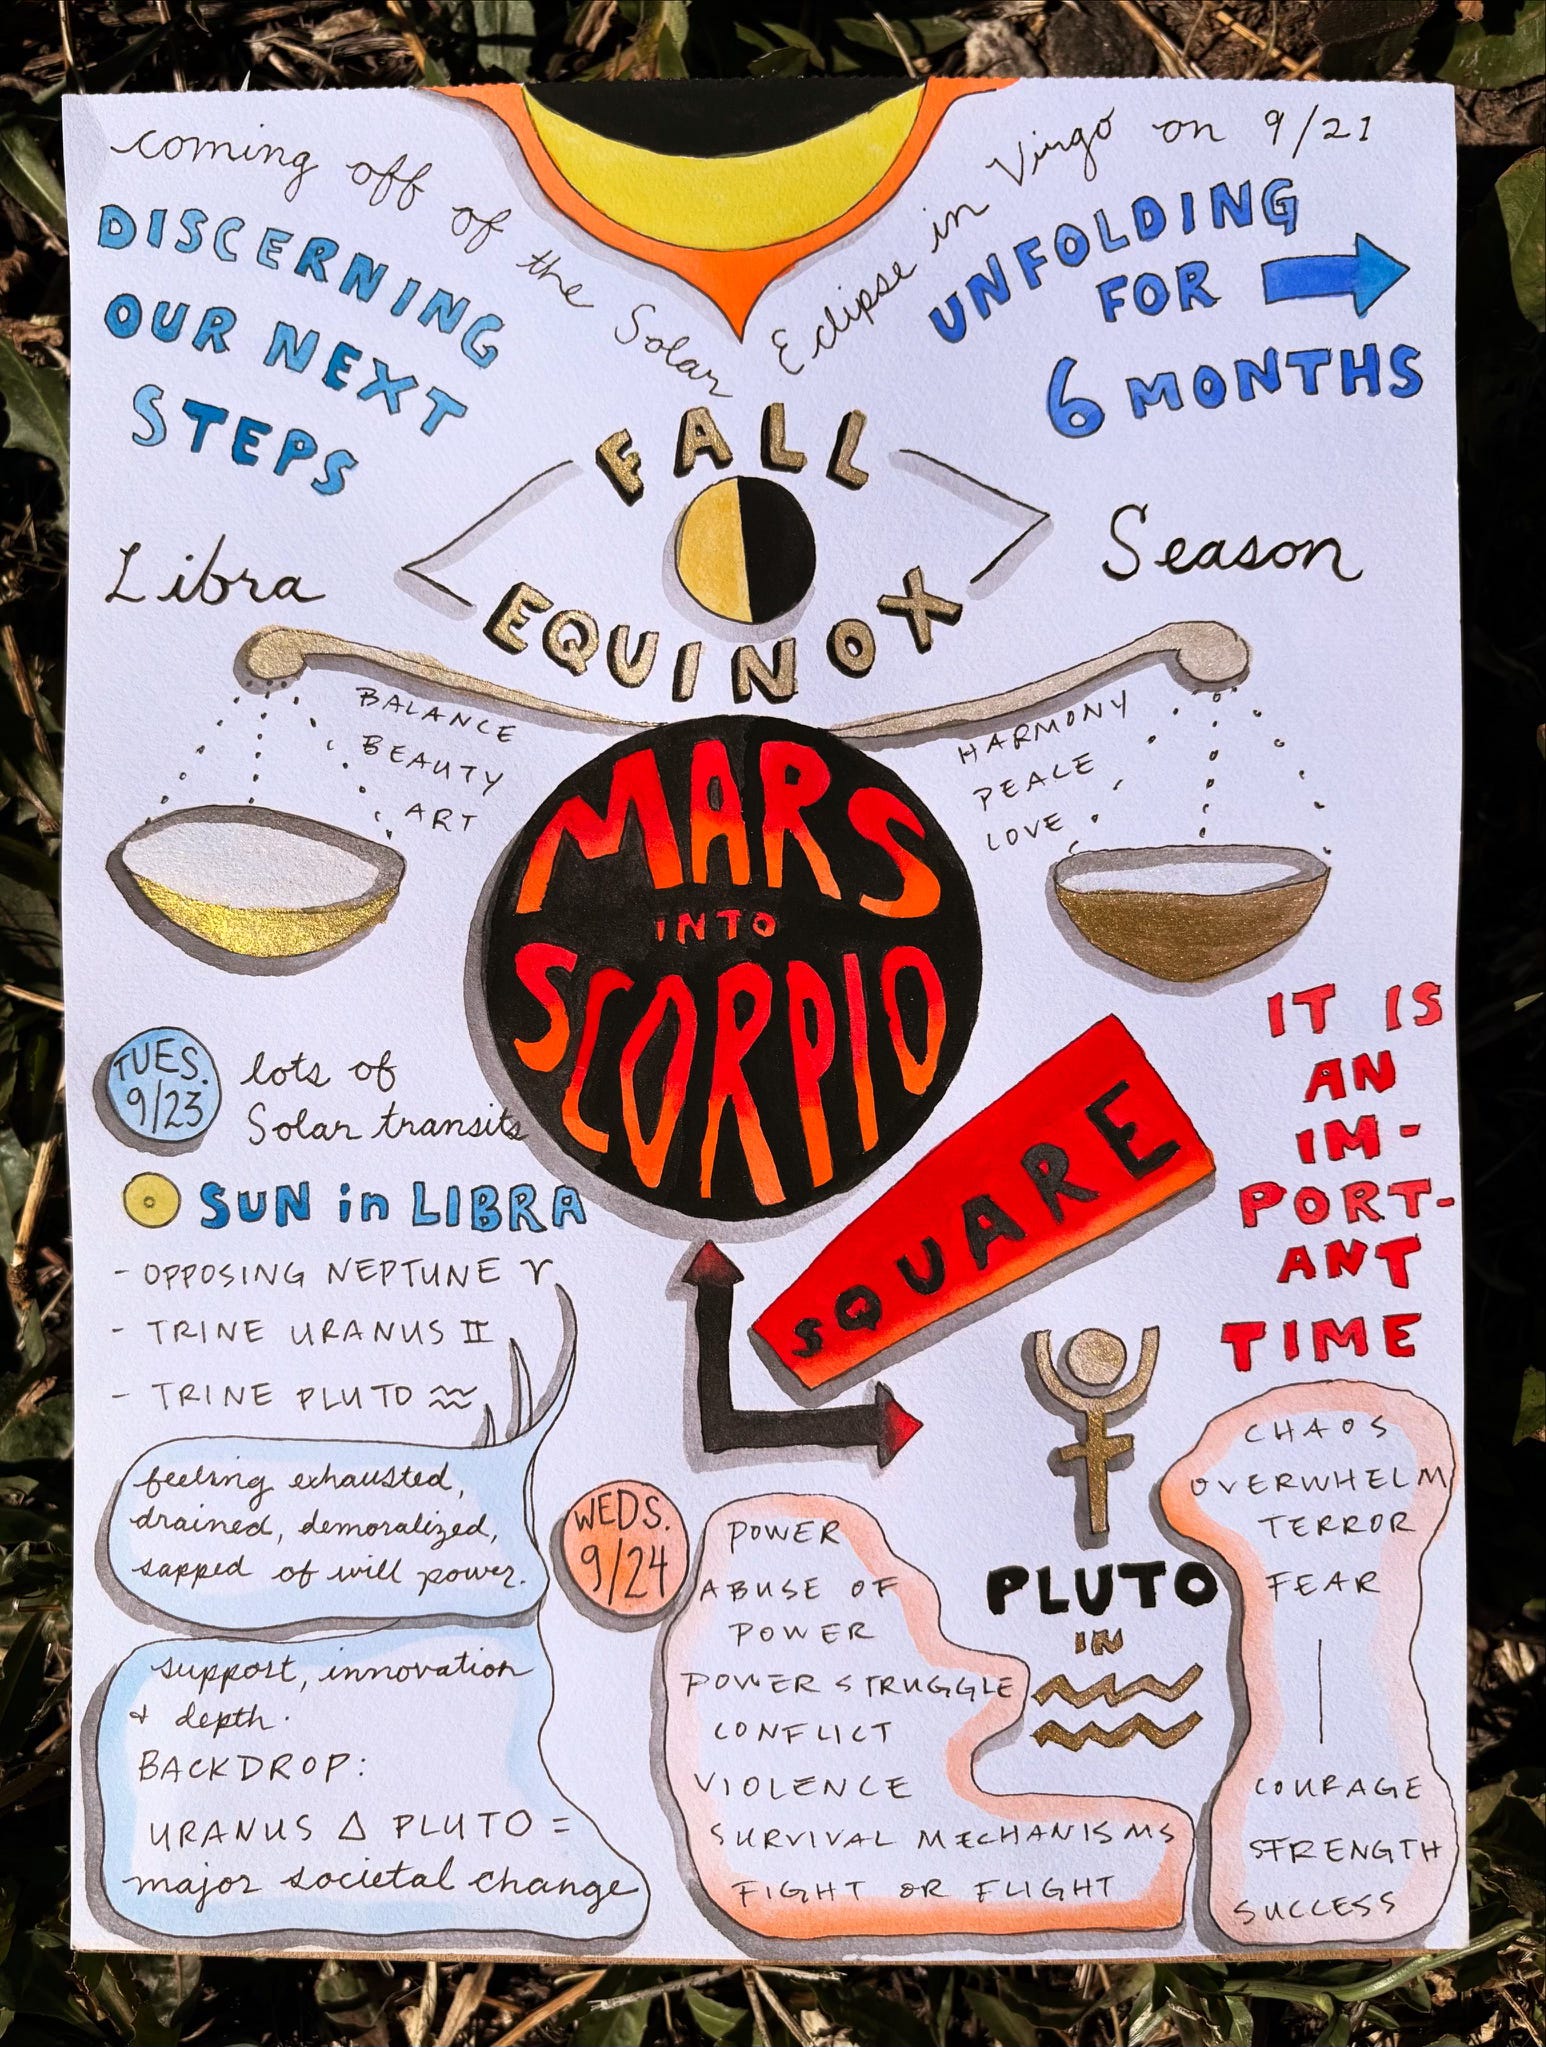 coming off of the Solar Eclipse in Virgo on 9/21
DISCERNING
OUR NEXT
STEPS
UNFOLDING
FOR
6 MONTHS
FALL
EQUINOX
Libra Season
BALANCE
BEAUTY
ART
HARMONY
PEACE
LOVE
MARS
INTO
SCORPIO
TUES.
9/23
lots of
Solar transits
SUN in LIBRA
- OPPOSING NEPTUNE ♈
- TRINE URANUS ♊
- TRINE PLUTO ♒
feeling exhausted,
drained, demoralized,
sapped of will power.
support, innovation
+ depth.
BACKDROP:
URANUS △ PLUTO =
major societal change
SQUARE
IT IS
AN
IM-
PORT-
ANT
TIME
WEDS.
9/24
POWER
ABUSE OF
POWER
POWER STRUGGLE
CONFLICT
VIOLENCE
SURVIVAL MECHANISMS
FIGHT OR FLIGHT
PLUTO
IN
♒
CHAOS
OVERWHELM
TERROR
FEAR
|
COURAGE
STRENGTH
SUCCESS